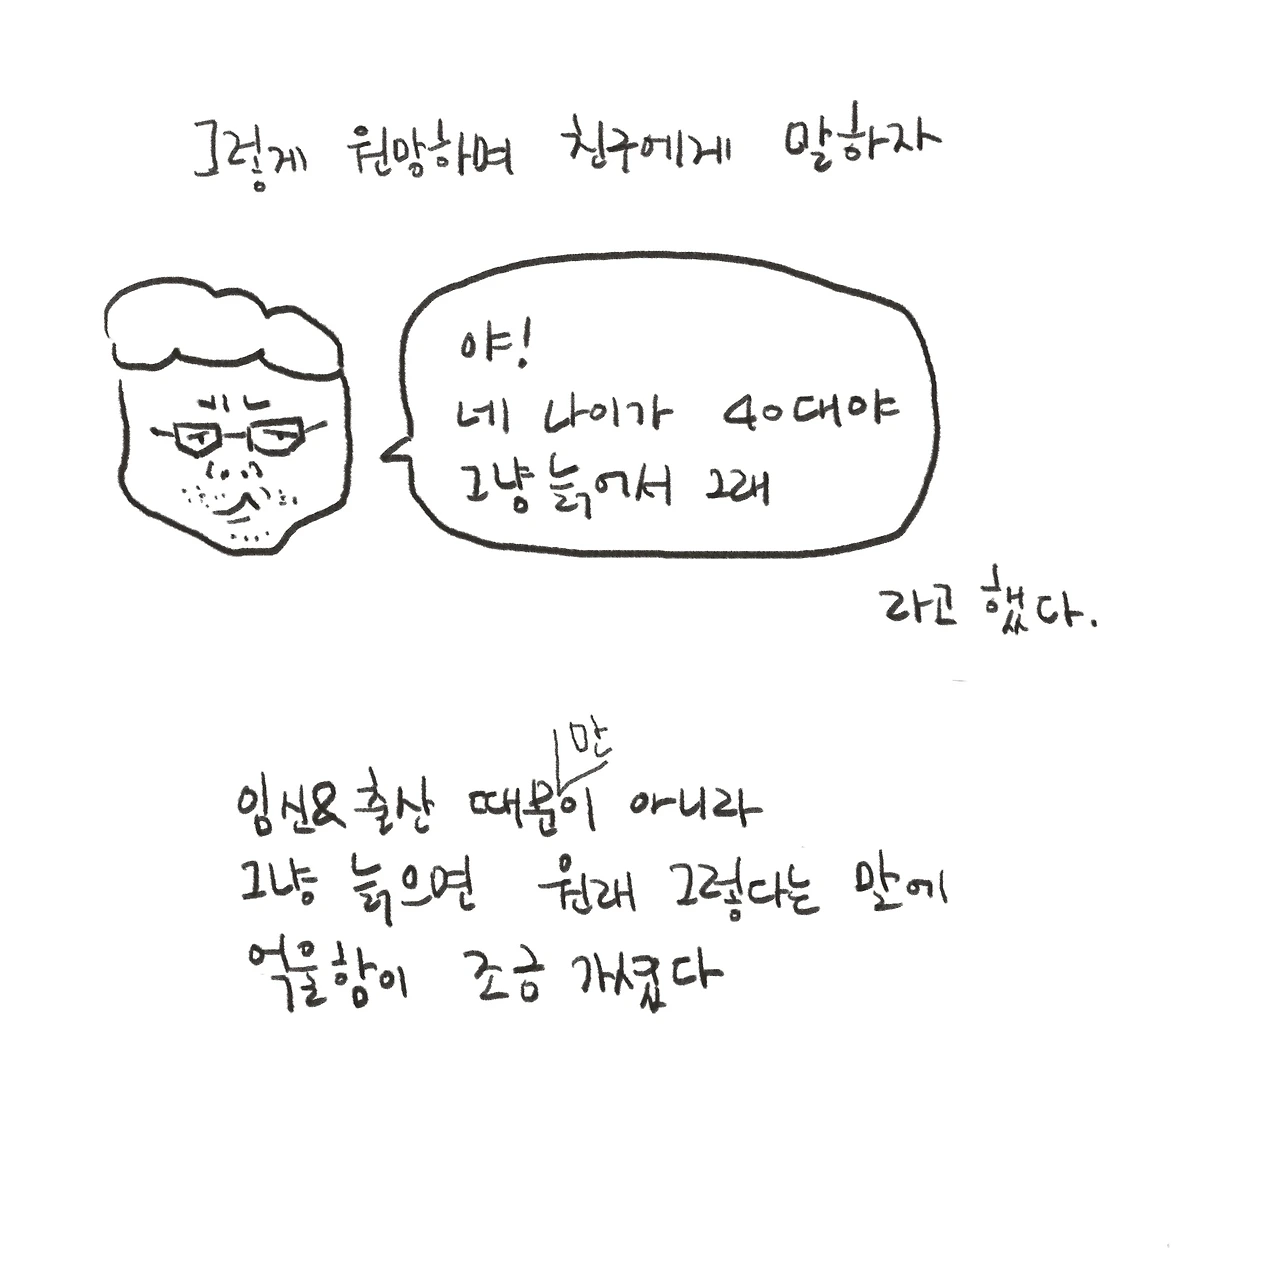 그렇게 원망하며 친구에게 말하자
야!
네 나이가 40대야
그냥 늙어서 그래
라고 했다.
임신&출산 때문만이 아니라
그냥 늙으면 원래 그렇다는 말에
억울함이 조금 가셨다